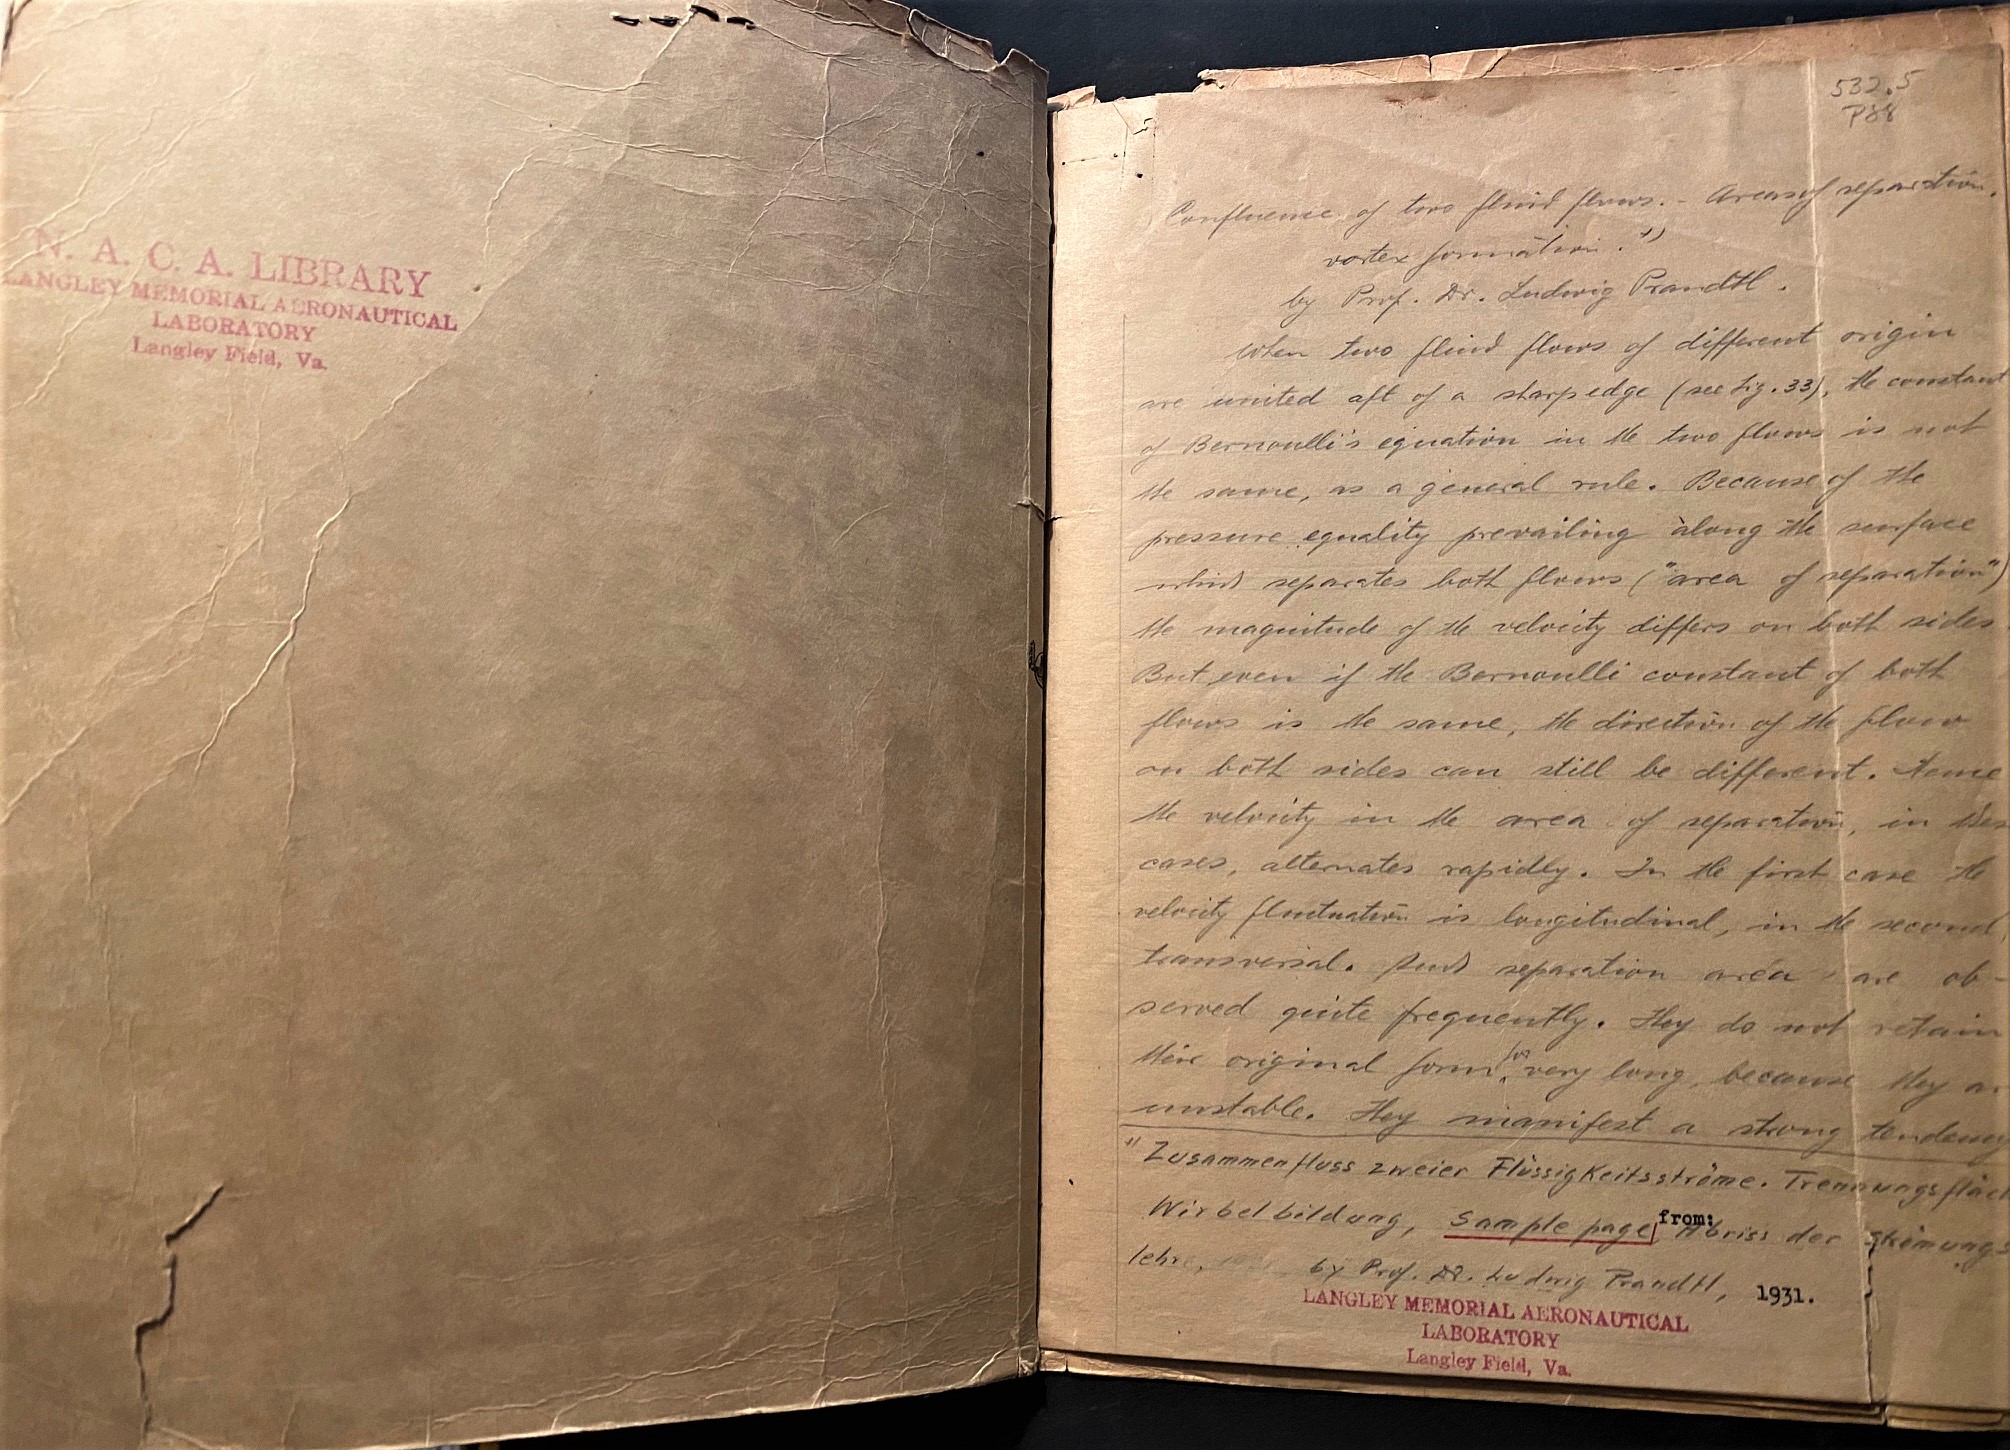 N. A. C. A. LIBRARY
LANGLEY MEMORIAL AERONAUTICAL
LABORATORY
Langley Field, Va.
532.5
P88
Confluence of two fluid flows. - Areas of separation.
vortex formation. 1)
by Prof. Dr. Ludwig Prandtl.
When two fluid flows of different origin
are united aft of a sharp edge (see Fig. 33), the constant
of Bernoulli's equation in the two flows is not
the same, as a general rule. Because of the
pressure equality prevailing along the surface
which separates both flows ("area of separation")
the magnitude of the velocity differs on both sides.
But even if the Bernoulli constant of both
flows is the same, the direction of the flow
on both sides can still be different. Hence
the velocity in the area of separation, in
cases, alternates rapidly. In the first case the
velocity fluctuation is longitudinal, in the second,
transversal. Such separation area are ob-
served quite frequently. They do not retain
their original form for very long, because they
unstable. They manifest a strong tendency
1) Zusammenfluss zweier Flüssigkeitsströme. Trennungsfläc
Wirbelbildung, Sample page from: Abriss der Strömungs
lehre, by Prof. Dr. Ludwig Prandtl, 1931.
LANGLEY MEMORIAL AERONAUTICAL
LABORATORY
Langley Field, Va.